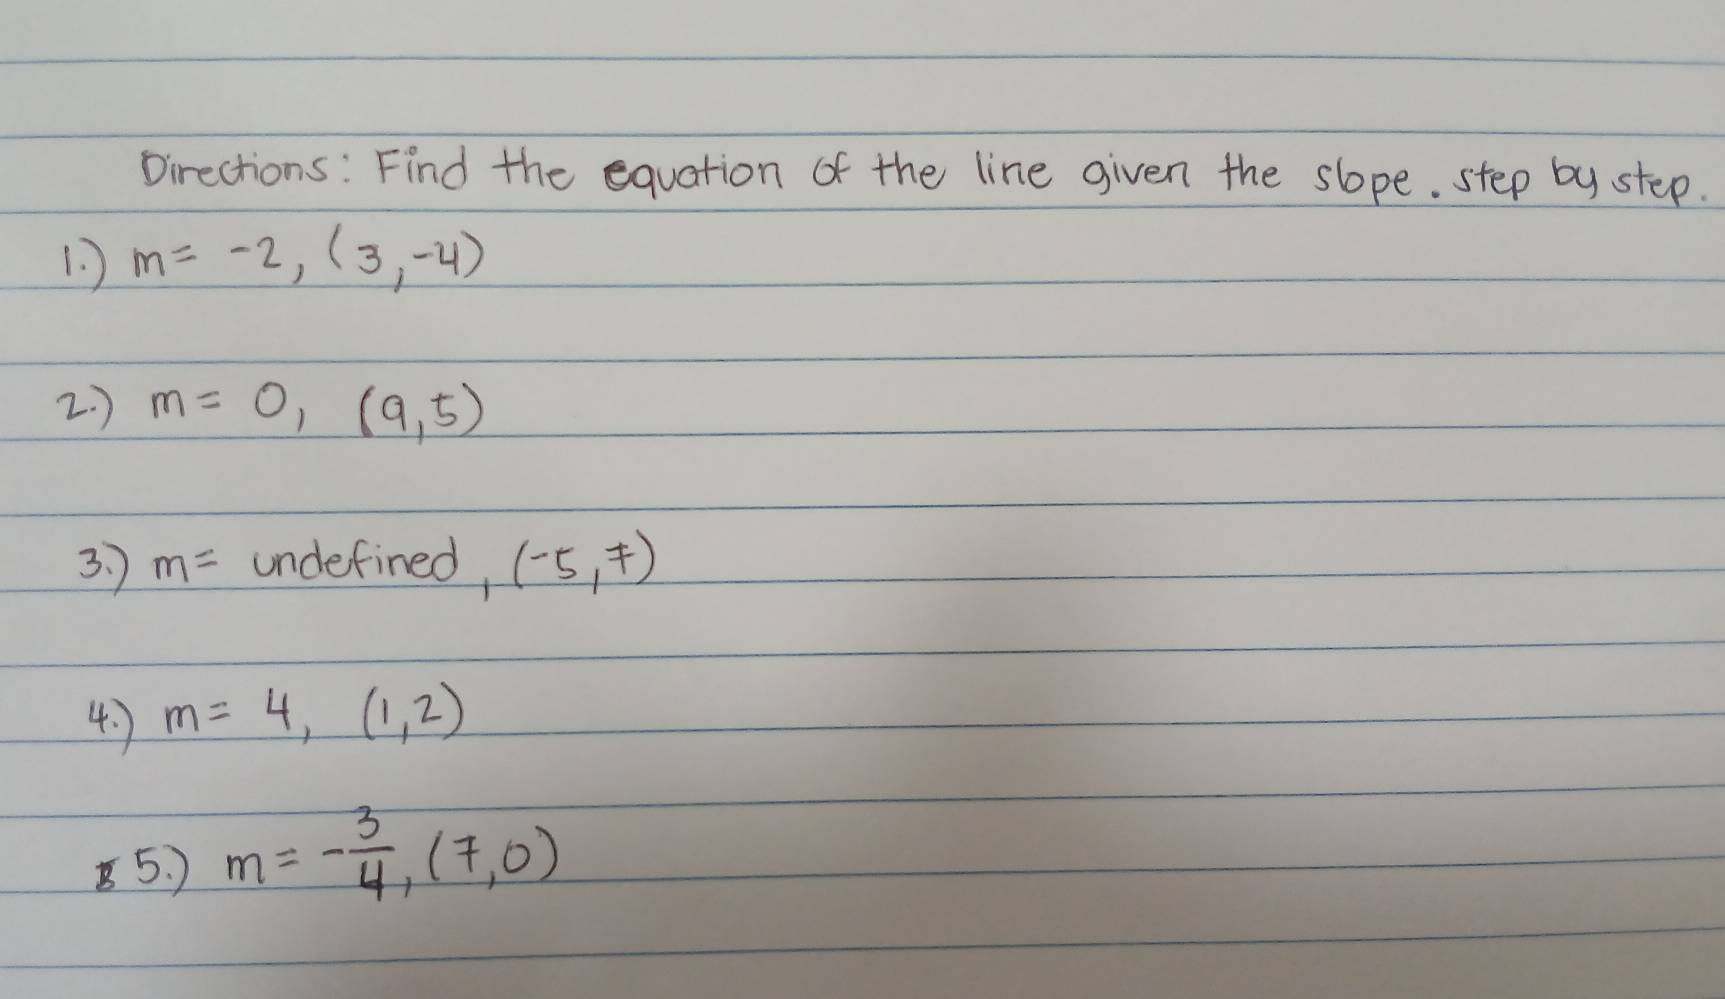 Directions: Find the equation of the line given the slope. step by step.
1.) m = -2, (3,-4)
2.) m = 0, (9,5)
3.) m = undefined, (-5,7)
4.) m = 4, (1,2)
5.) m = -3/4, (7,0)